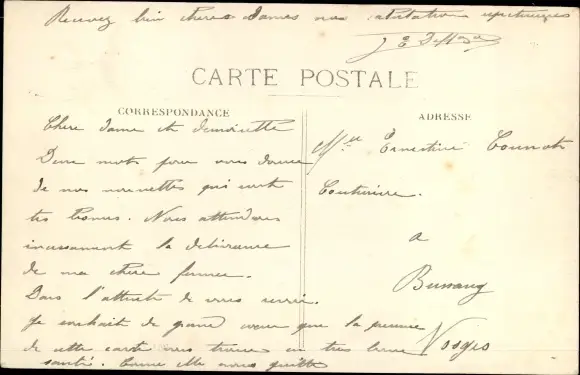 Recevez bien chères Dames nos salutations
J E Deff
CARTE POSTALE
CORRESPONDANCE
ADRESSE
Chère dame et demoiselle
Deux mots pour vous donner
de nos nouvelles qui sont
très bonnes. Nous attendons
incessamment la délivrance
de ma chère femme.
Dans l'attente de vous
Je souhait de grand coeur que la
de cette carte vous trouve en très bonne
santé. Comme elle nous quitte
Mlle Ernestine
Couturière.
a
Bussang
Vosges